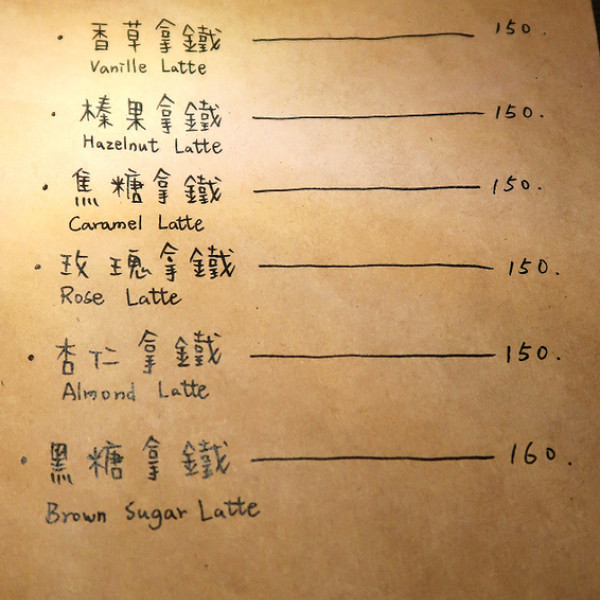 · 香草拿鐵 —— 150.
Vanille Latte
· 榛果拿鐵 —— 150.
Hazelnut Latte
· 焦糖拿鐵 —— 150.
Caramel Latte
· 玫瑰拿鐵 —— 150.
Rose Latte
· 杏仁拿鐵 —— 150.
Almond Latte
· 黑糖拿鐵 —— 160.
Brown Sugar Latte